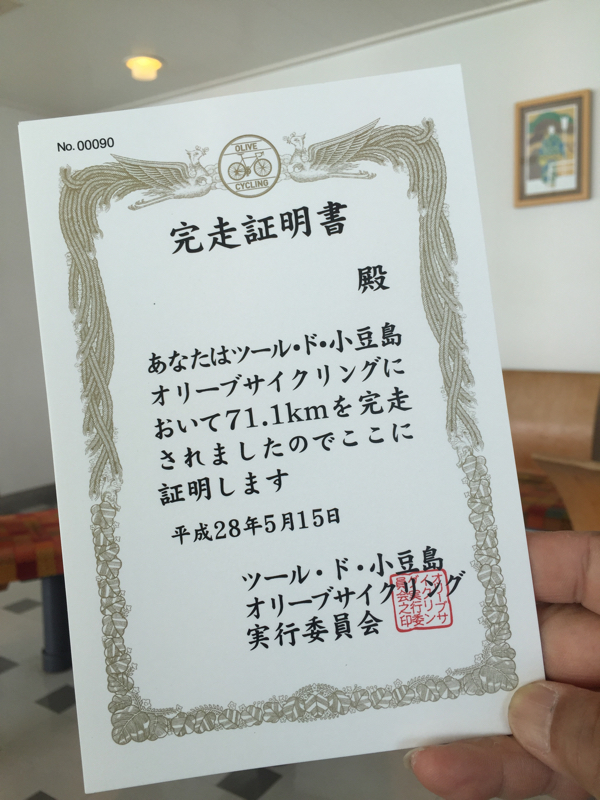 No. 00090
OLIVE
CYCLING
完走証明書
殿
あなたはツール・ド・小豆島
オリーブサイクリングに
おいて71.1kmを完走
されましたのでここに
証明します
平成28年5月15日
ツール・ド・小豆島
オリーブサイクリング
実行委員会